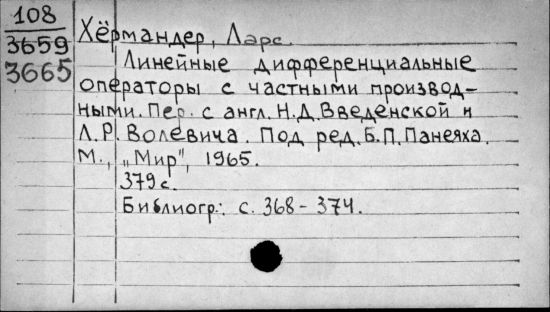 108
3659
3665
Хёрмандер, Ларс.
Линейные дифференциальные
операторы с частными производ-
ными. Пер. с англ. Н.Д. Введенской и
Л.Р. Волевича. Под ред. Б.П. Панеяха.
М., „Мир", 1965.
379 с.
Библиогр.: с. 368-374.